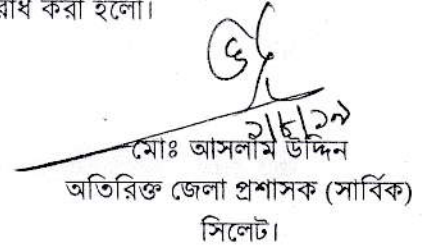 রোধ করা হলো।
২/৮/১৭
মোঃ আসলাম উদ্দিন
অতিরিক্ত জেলা প্রশাসক (সার্বিক)
সিলেট।